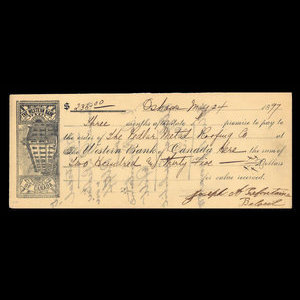 $ 235.00 Oshawa May 24 1897
Three months after date I promise to pay to
the order of The Pedlar Metal Roofing Co at
The Western Bank of Canada here the sum of
Two Hundred & Thirty Five Dollars
for value received.
Joseph A